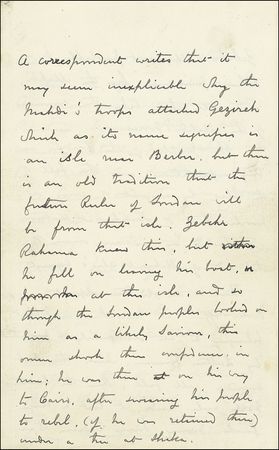 A correspondent writes that it
may seem inexplicable why the
Mahdi's troops attacked Gezireh
which as its name signifies is
an isle near Berber. but there
is an old tradition that the
future Ruler of Soudan will
be from that isle. Zebehr
Rahama knew this, but
he fell on leaving his boat,
at this isle, and so
though the Soudan peoples looked on
him as a likely Saviour, this
omen shook their confidence in
him; he was then on his way
to Cairo, after swearing his people
to rebel, (if he was retained there)
under a tree at Shaka.